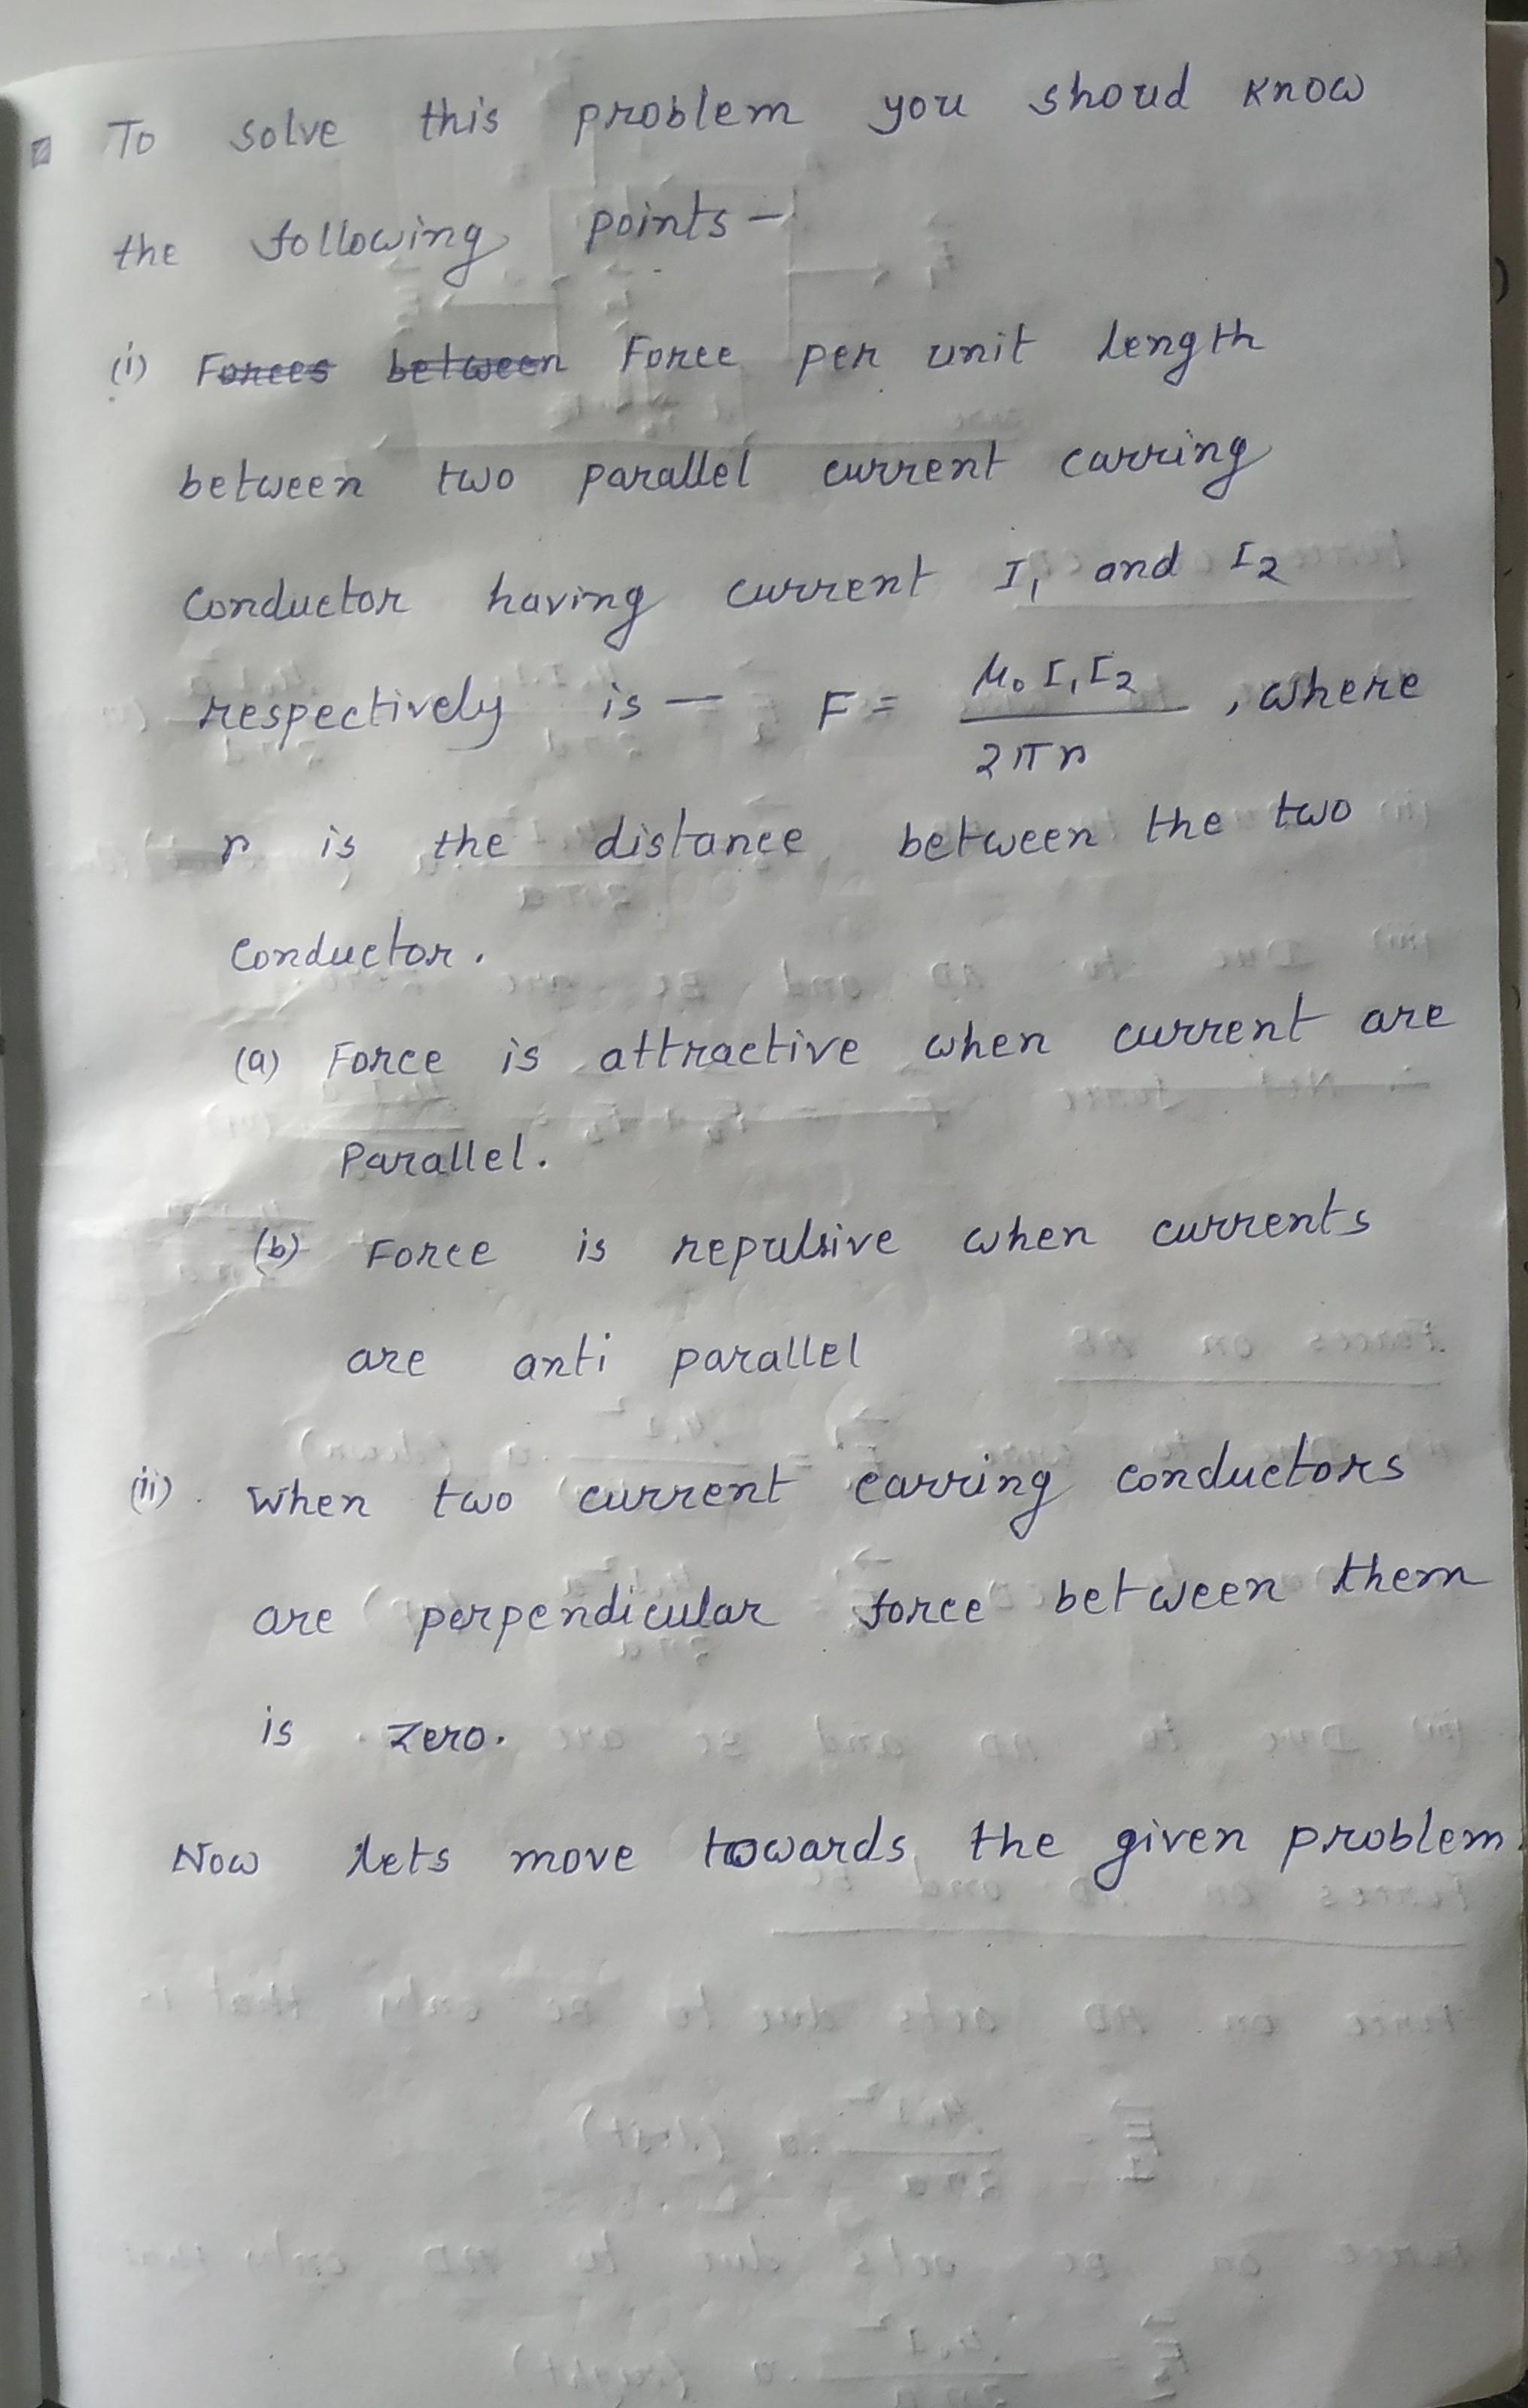 To solve this problem you shoud know
the following points —
(i) Forces between Force per unit length
between two parallel current carring
Conductor having current I₁ and I₂
respectively is — F = μ₀ I₁ I₂ / 2πr , where
r is the distance between the two
Conductor.
(a) Force is attractive when current are
Parallel.
(b) Force is repulsive when currents
are anti parallel
(ii). When two current carring conductors
are perpendicular force between them
is zero.
Now lets move towards the given problem.